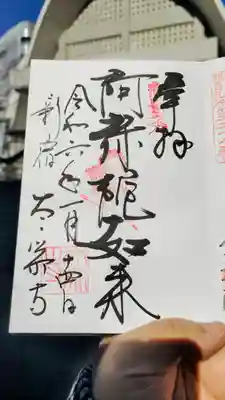 奉拝
阿弥陀如来
令和六年一月十四日
新宿
太宗寺